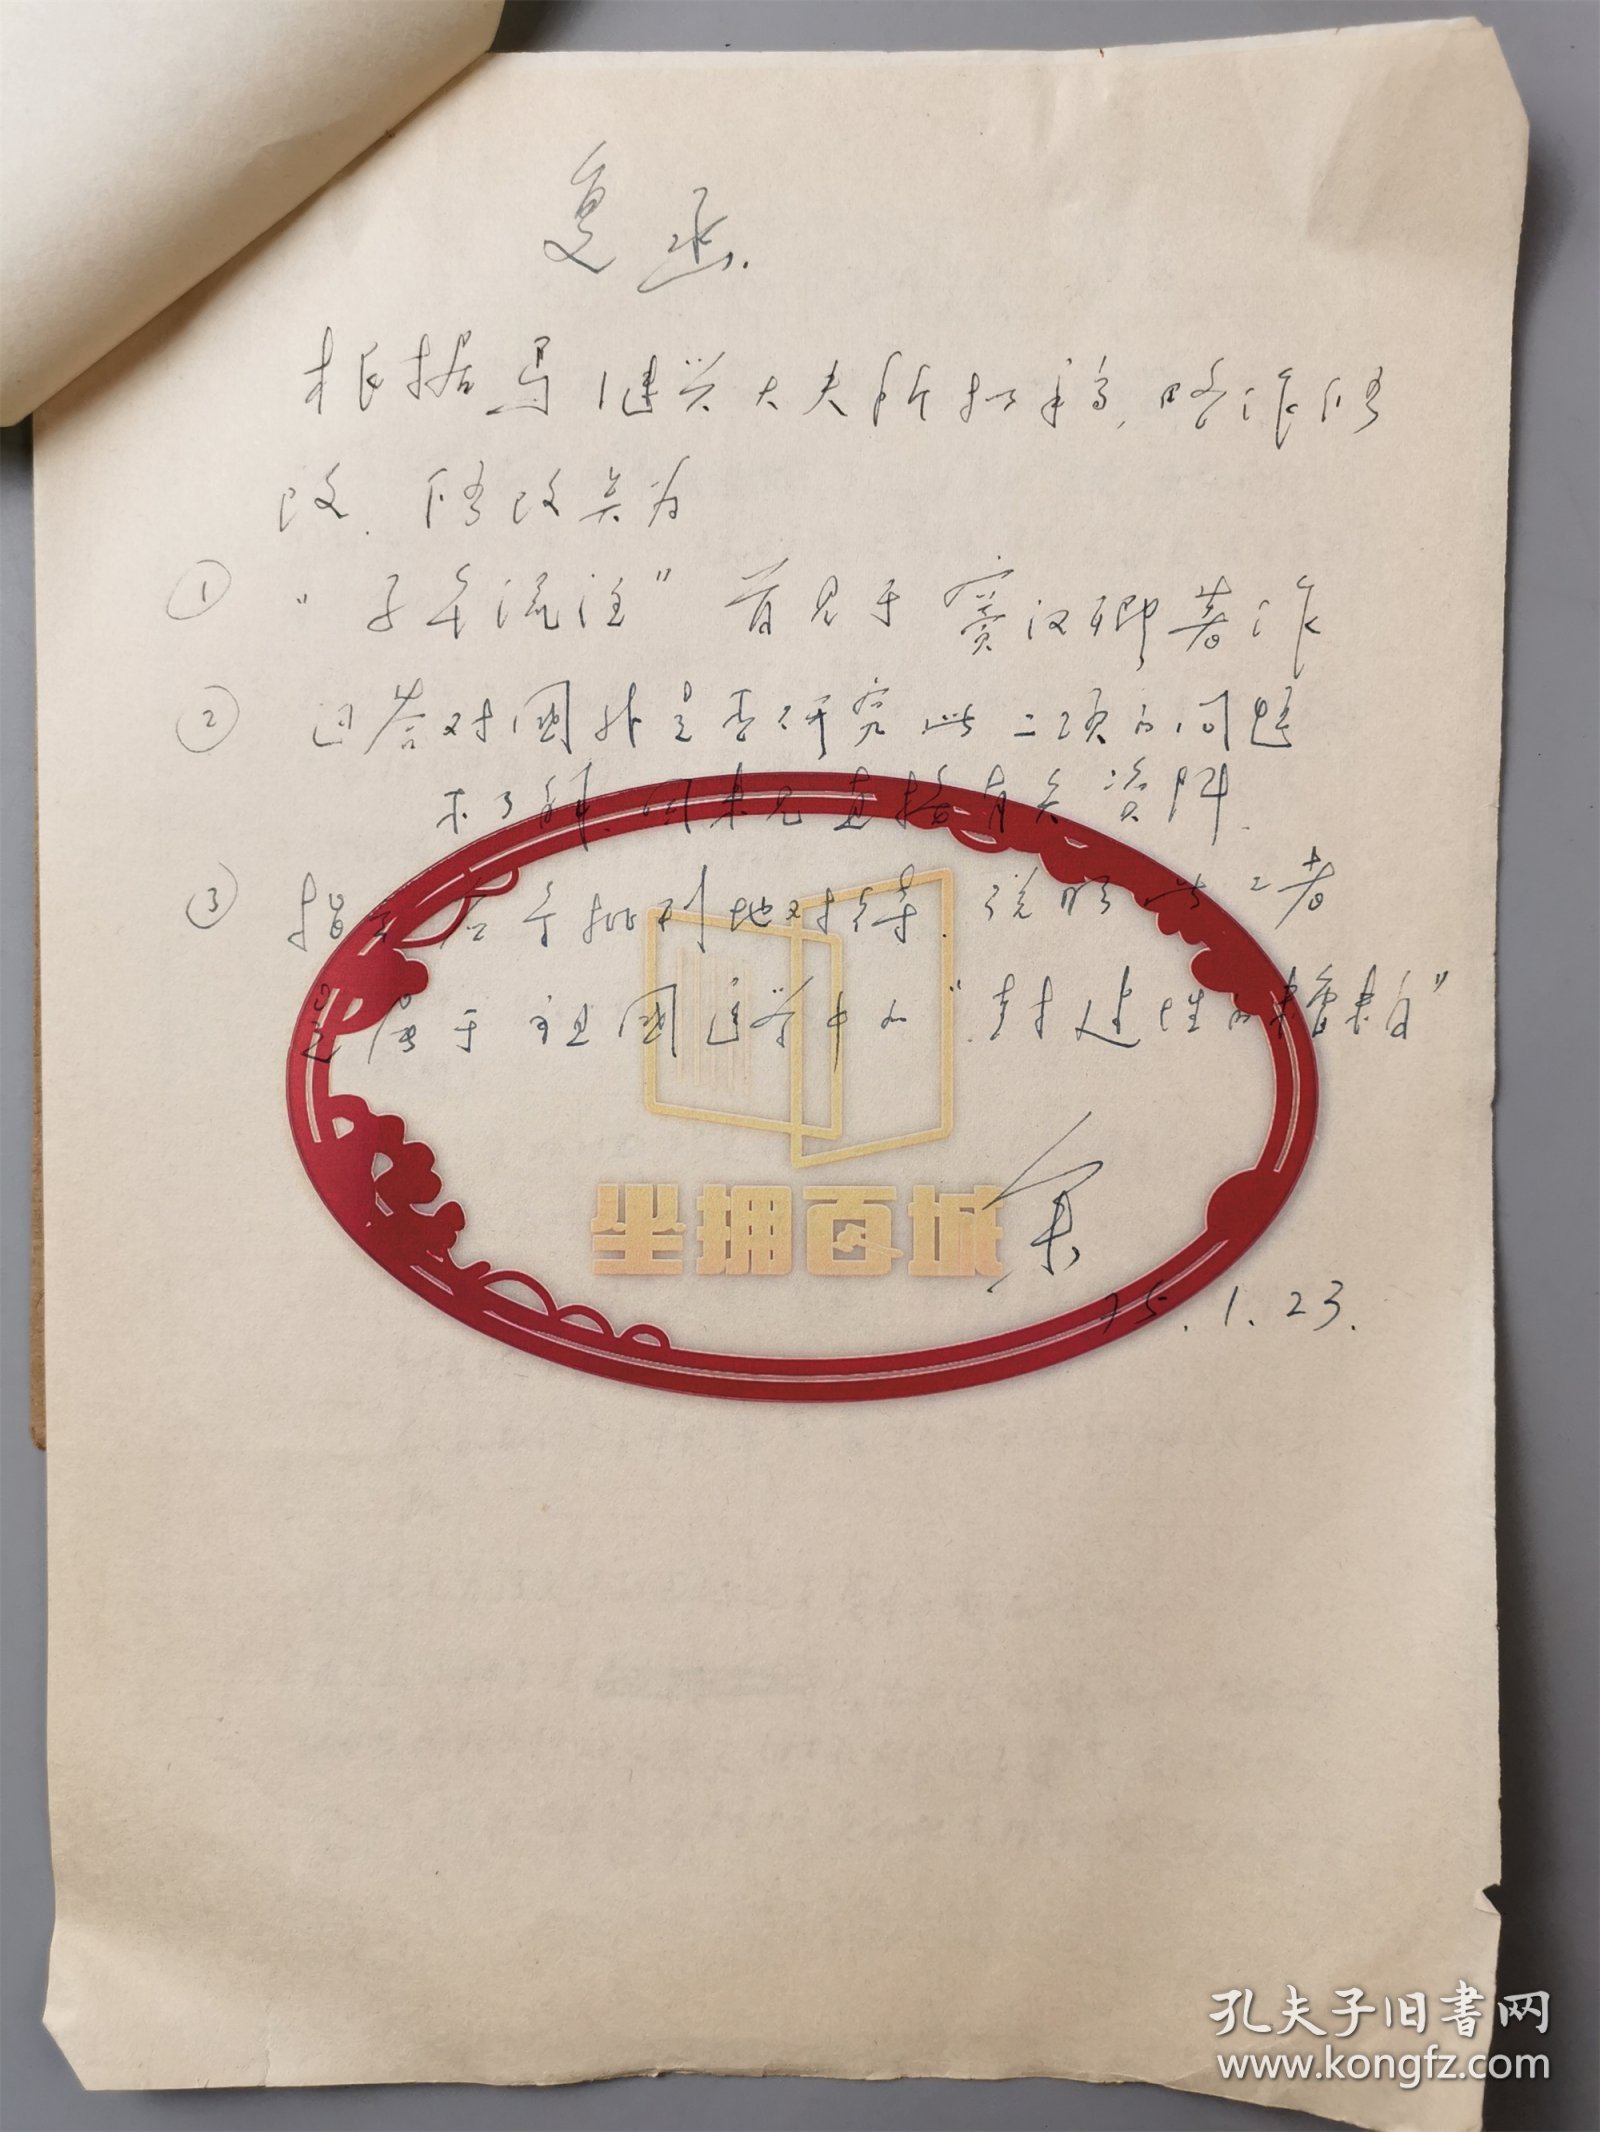 复函.
根据马继兴大夫所拟稿,略作修
改.修改点为
① “子午流注”首见于窦汉卿著作
② 回答对国外是否研究此二项的问题
不了解.因未见直接有关资料.
③ 指 排列地对待.说明此二者
是属于祖国医学中的“封建性的糟粕”
75.1.23.
坐拥百城
孔夫子旧书网
www.kongfz.com